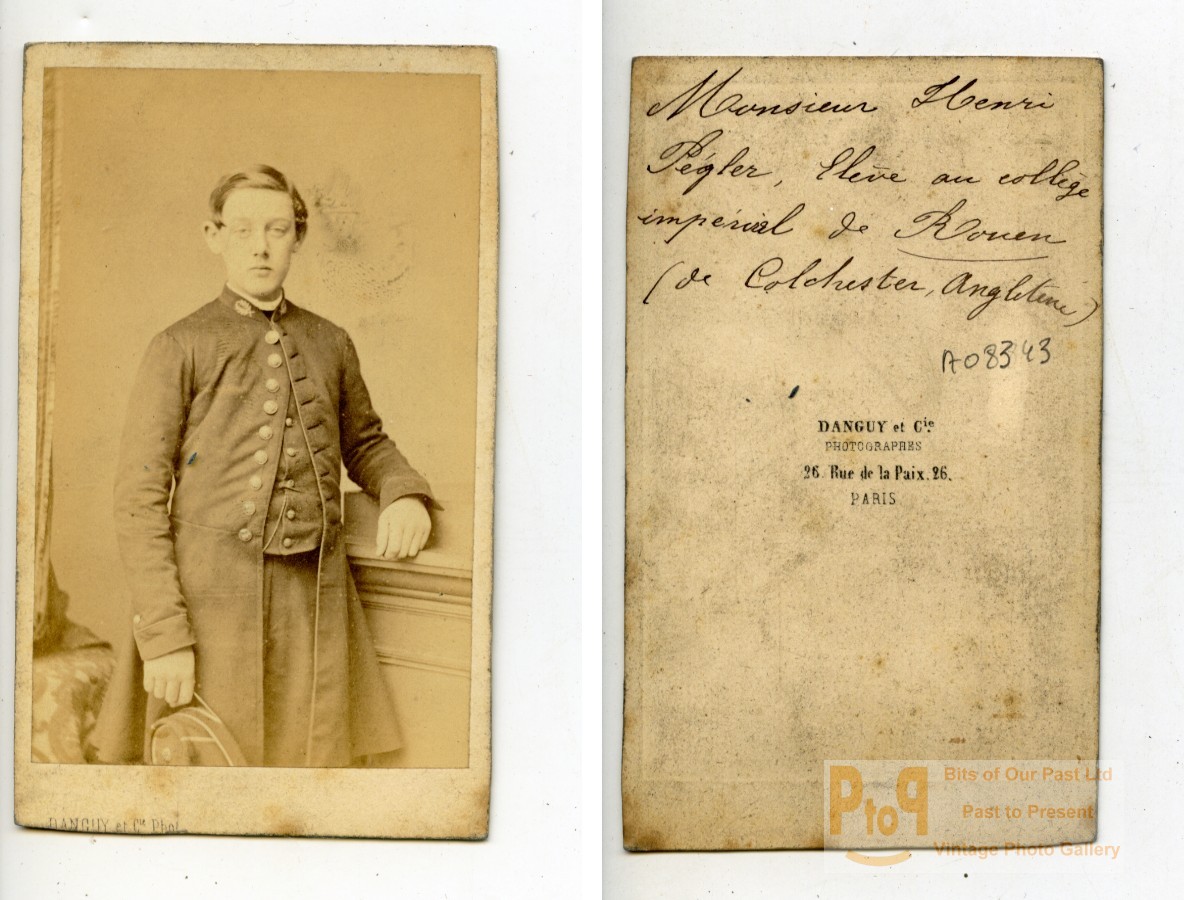 DANGUY et Cie Phot.
Monsieur Henri
Pégler, Elève au collège
impérial de Rouen
(de Colchester, Angleterre)
A08343
DANGUY et Cie
PHOTOGRAPHES
26. Rue de la Paix. 26.
PARIS
PtoP
Bits of Our Past Ltd
Past to Present
Vintage Photo Gallery